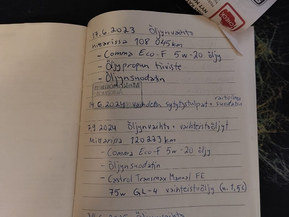 14.6.2023 Öljynvaihto
mittarissa 108 045km
- Comma Eco-F 5w-20 öljy
- Öljypropun tiiviste
- Öljynsuodatin
14.6.2024 vaihdettu sytytystulpat + suodatin
7.9.2024 Öljynvaihto + vaihteistoöljyt
Mittarissa 120 273 km
- Comma Eco-F 5w-20 öljy
- Öljynsuodatin
- Castrol Transmax Manual FE
75w GL-4 vaihteistoöljy (n. 1,5l)
Öljynvaihto